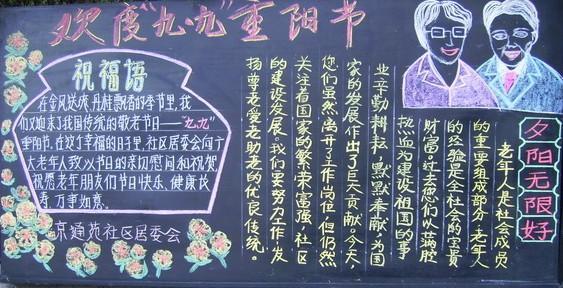 欢度“九·九”重阳节
祝福语
在金风送爽、丹桂飘香的季节里，我
们又迎来了我国传统的敬老节日——“九九”
重阳节。在这个幸福的日子里，社区居委会向广
大老年人致以节日的亲切慰问和祝贺，
祝愿老年朋友们节日快乐、健康长
寿、万事如意。
京通苑社区居委会
夕阳无限好
老年人是社会成员
的重要组成部分，老年人
的经验是全社会的宝贵
财富。过去他们以满腔
热血为建设祖国的事
业辛勤耕耘，默默奉献，为国
家的发展作出了巨大贡献。今天，
他们虽然离开了工作岗位，但仍然
关注着国家的繁荣富强，社区
的建设发展。我们要努力工作，发
扬尊老爱老助老的优良传统。